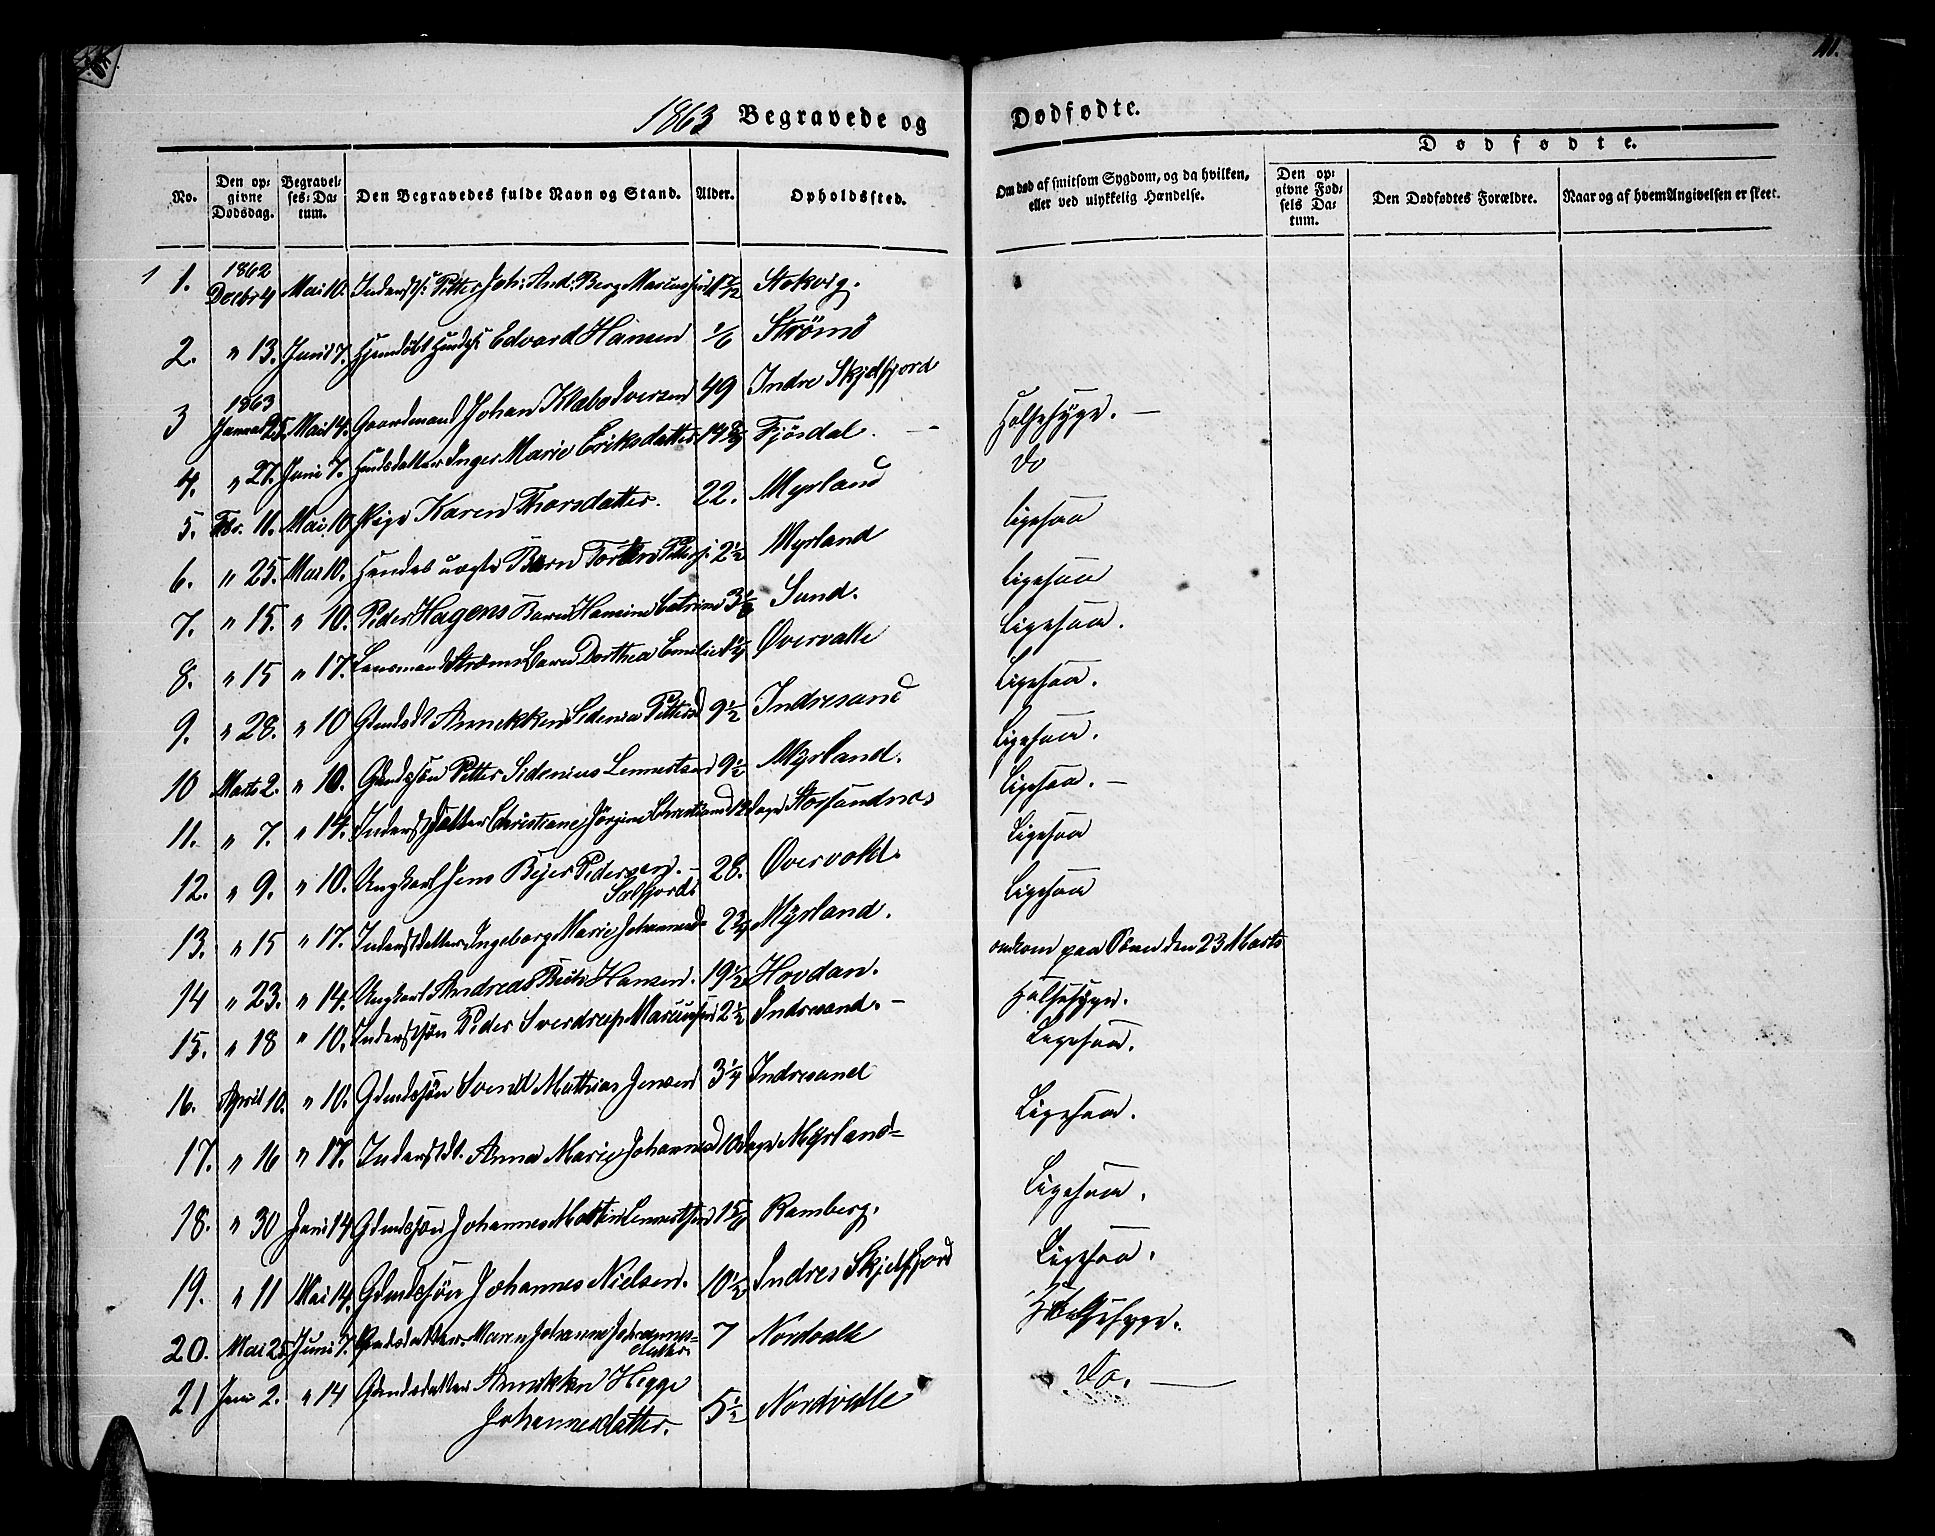 111.
1863 Begravede og Dødfødte.
No. Den opgivne Dødsdag. Begravelses-Datum. Den Begravedes fulde Navn og Stand. Alder. Opholdssted. Om død af smitsom Sygdom, og da hvilken, eller ved ulykkelig Hændelse. Dødfødte. Den opgivne Fødsels Datum. Den Dødfødtes Forældre. Naar og af hvem Angivelsen er skeet.
1 1. 1862 Decbr 4 Mai 10. Petter Joh: And: Berg Stokvig.
2. " 13. Juni 7. Edvard Hansen 1/6 Strømø
3 1863 Januar 25. Mai 14. Gaardmand Johan Klabo Iversen 49 Indre Skjelfjord Halssyge. —
4. " 27. Juni 7. Inger Marie Eriksdatter Fjøsdal. — do
5. Fbr. 11. Mai 10 Pige Karen Thorsdatter. 22. Myrland Ligesaa
6. " 25. Mai 10. Hendes uægte Barn 2 1/2 Myrland Ligesaa
7. " 15. " 10. Peder Hagens Barn Hansine Catrine Sund. Ligesaa.
8. " 15 " 17. Lensmand Strøms Barn Dorthea Emilie Øvervolle Ligesaa.
9. " 28. " 10 Annekken Sidenia 9 1/2 Indresand Ligesaa.
10 Marts 2. " 10. Gdmdssøn Petter Sidenius Lennertsen 9 1/2 Myrland. Ligesaa. —
11. " 7. " 14. Inderstdatter Christiane Jørgine Storsandnes Ligesaa
12. " 9. " 10. Ungkarl Jens Beyer Pedersen. — Solfjord 28. Øvervold. Ligesaa
13. " 15 " 17. Inderstdatter Ingeborg Marie Johannesd Myrland. omkom paa Søen den 23 Marts
14 " 23. " 14. Ungkarl Andreas Hansen. 19 1/2 Hovdan. Halssyge.
15. " 18 " 10. Inderstsøn Peder Sverdrup Mariusen 2 1/2 Indresand. — Ligesaa.
16. April 10. " 10. Gdmdssøn Svend Mathias Jensen 3 1/4 Indresand Ligesaa.
17. " 16 " 17. Inderstdt. Anna Marie Johannesd 10 Dage Myrland — Ligesaa.
18. " 30 Juni 14 Gdmdssøn Johannes Martin Lennertsen Ramberg. Ligesaa.
19. " 11 Mai 14. Gdmdssøn Johannes Nielsen. 10 1/2 Indre Skjelfjord Halssyge.
20. Mai 25. Juni 7. Maren Johanna Johannesdatter 7 Nordvolle Do. —
21 Juni 2. " 14 Gdmdsdatter Annekken Hegge Johannesdatter. 5 1/2 Nordvolle